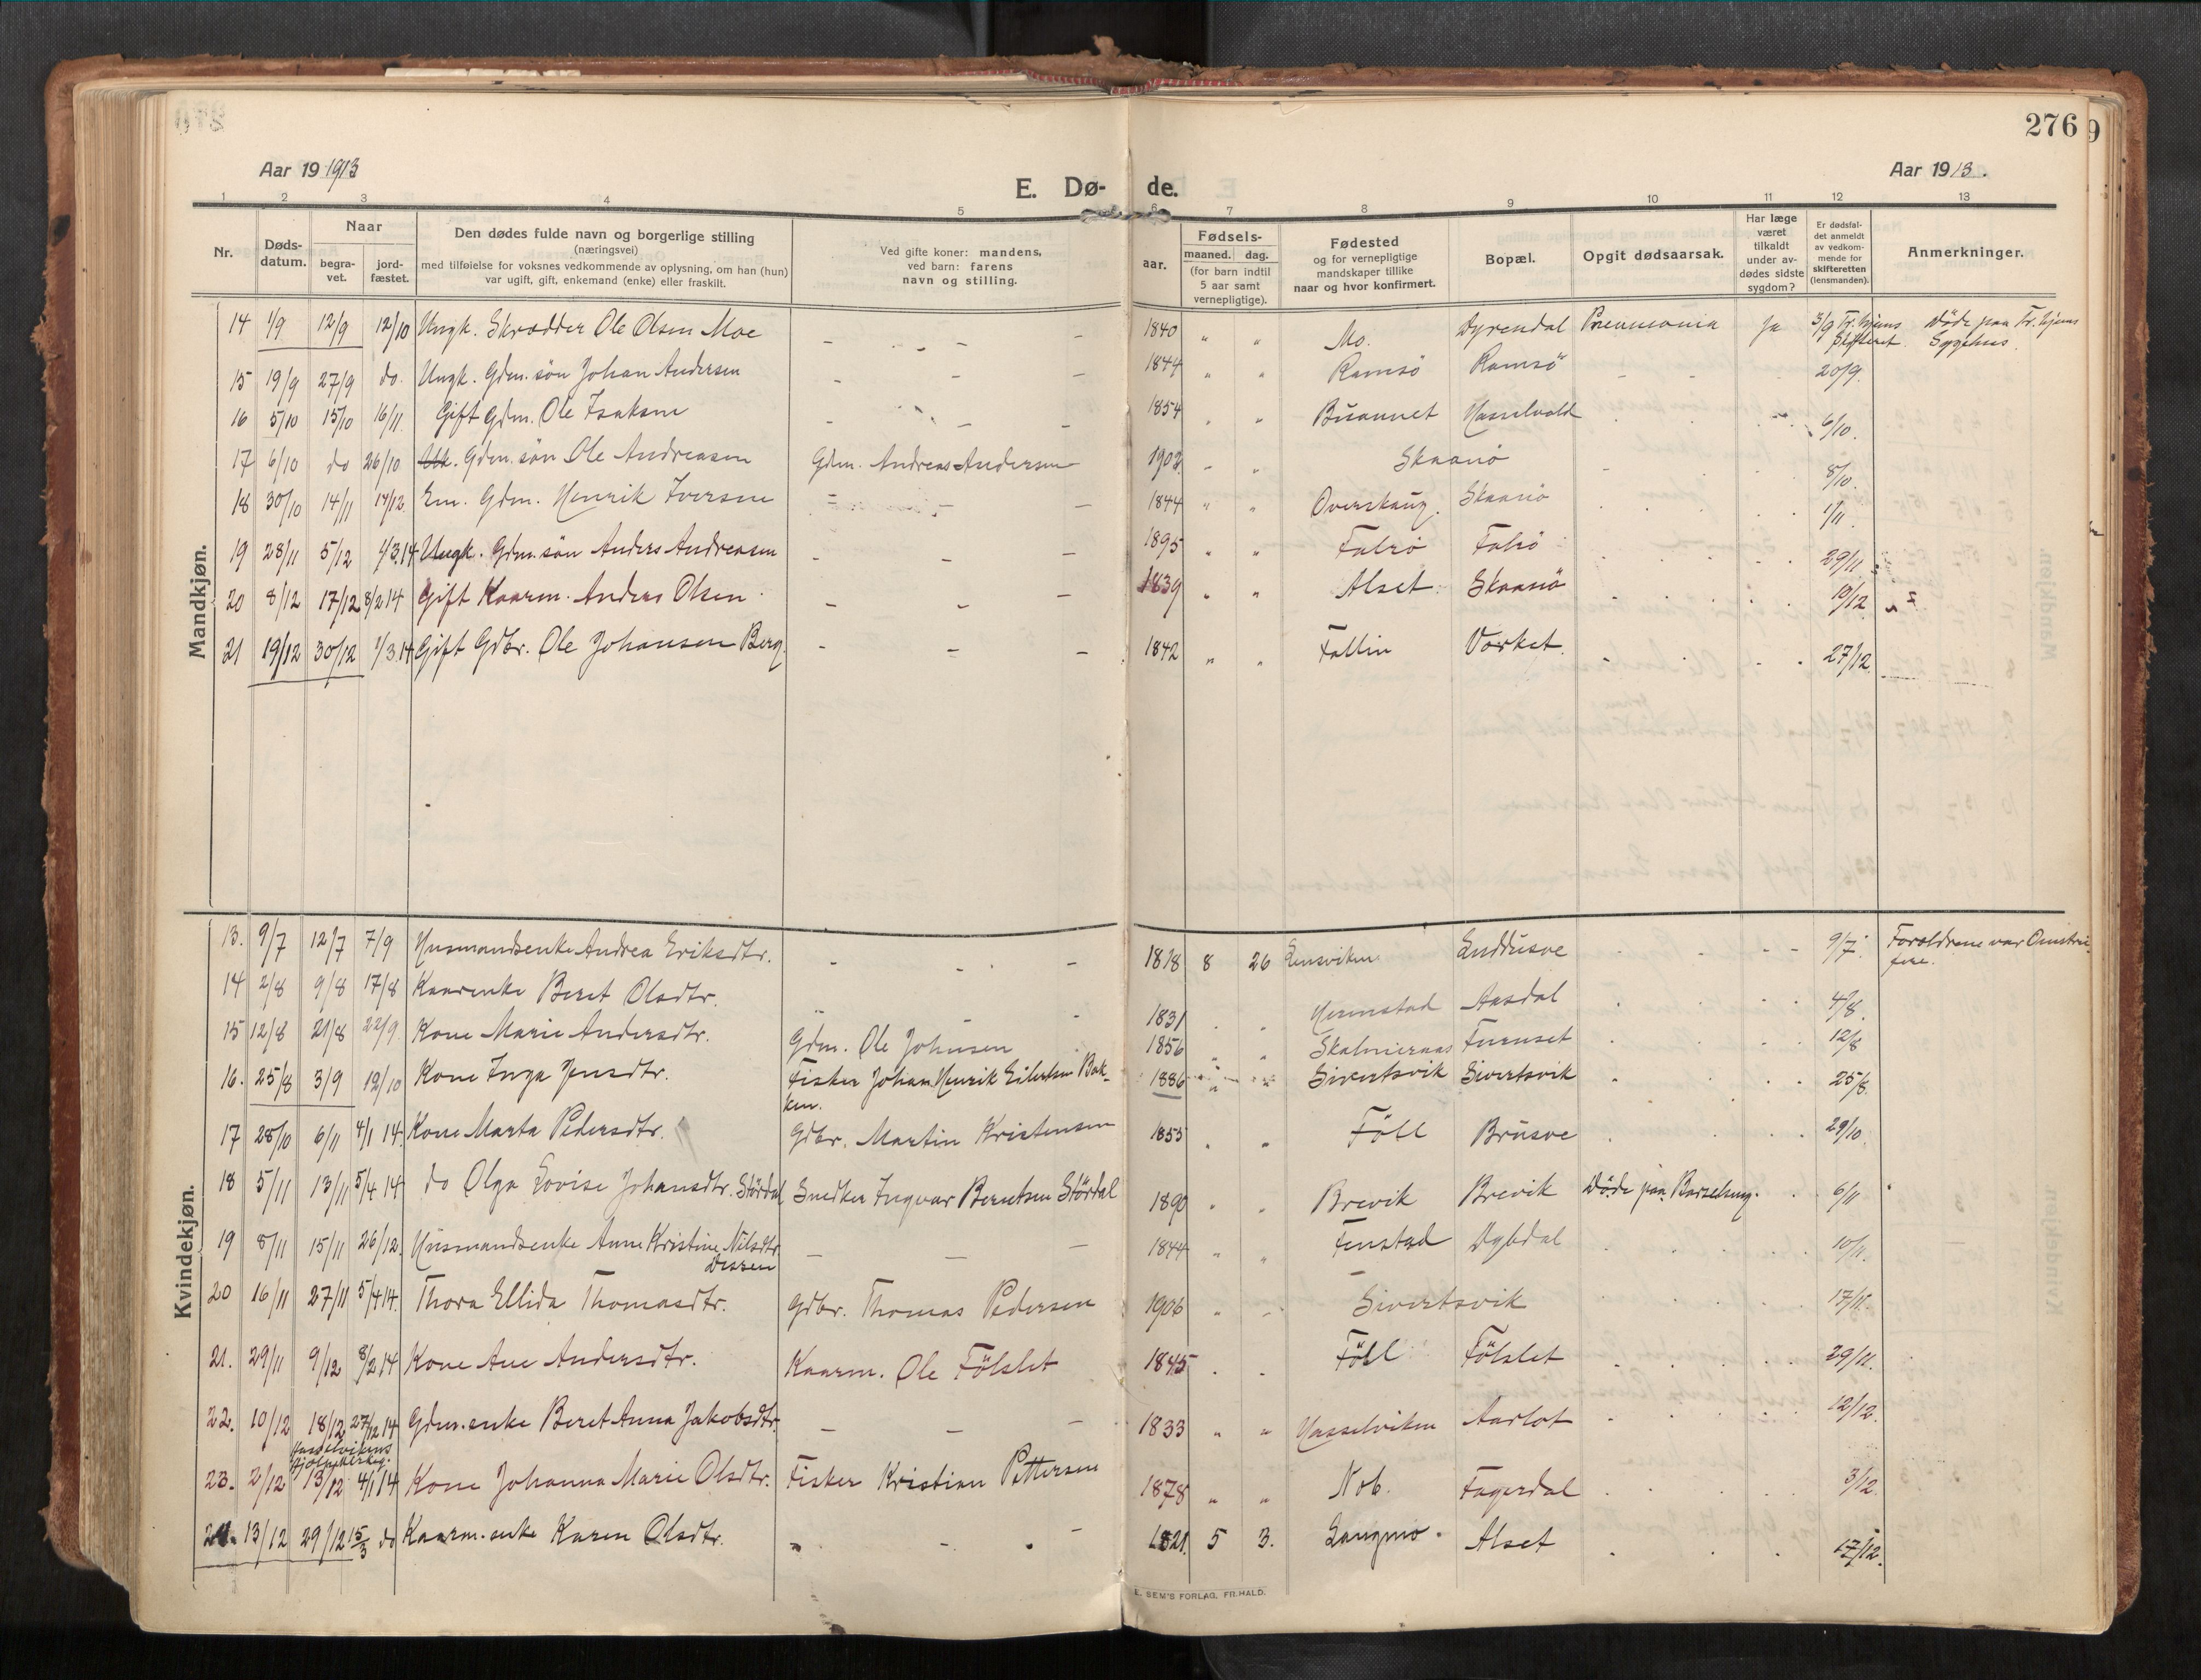 276
9
Aar 19 1913
E. Dø- de.
Aar 1913.
1 2 3 4 5 6 7 8 9 10 11 12 13
Nr.
Døds-
datum.
Naar
begra-
vet.
jord-
fæstet.
Den dødes fulde navn og borgerlige stilling
(næringsvei)
med tilføielse for voksnes vedkommende av oplysning, om han (hun)
var ugift, gift, enkemand (enke) eller fraskilt.
Ved gifte koner: mandens,
ved barn: farens
navn og stilling.
Fødsels-
aar.
maaned. dag.
(for barn indtil
5 aar samt
vernepligtige).
Fødested
og for vernepligtige
mandskaper tillike
naar og hvor konfirmert.
Bopæl.
Opgit dødsaarsak.
Har læge
været
tilkaldt
under av-
dødes sidste
sygdom?
Er dødsfal-
det anmeldt
av vedkom-
mende for
skifteretten
(lensmanden).
Anmerkninger.
Mandkjøn.
14 1/9 12/9 12/10 Ungk. Skrædder Ole Olsen Moe - - - 1840 " " Mo. Dyrendal Pneumonia Ja 3/9 Tr.hjems Skifteret. Døde paa Tr.hjems
Sygehus.
15 19/9 27/9 do. Ungk. Gdm. søn Johan Andersen - - - 1844 " " Ramsö Ramsö - - 20/9.
16 5/10 15/10 16/11. Gift Gdm. Ole Isaksen - - - 1854 " " Buannet Hasselvold 6/10.
17 6/10 do 26/10 Gdm. søn Ole Andreasen Gdm. Andreas Andersen 1902 " " Skaanö 8/10.
18 30/10 14/11 14/12. Em. Gdm. Henrik Iversen 1844 " " Overskaug. Skaanö 1/11.
19 28/11 5/12 1/3.14 Ungk. Gdm. søn Anders Andreasen - - - 1895 " " Falrö Falrö 29/11
20 8/12 17/12 8/2 14 Gift Kaarm. Anders Olsen - - - 1839 " " Alset Skaanö 10/12
21 19/12 30/12 1/3.14 Gift Gdbr. Ole Johansen Berg. - - - 1842 " " Fallin Vorket. 27/12.
Kvindekjøn.
13. 9/7 12/7 7/9 Husmandsenke Andrea Eriksdtr. - - - 1818 8 26 Lensviken Enddusve 9/7. Forældrene var
14 2/8 9/8 17/8 Kaarenke Beret Olsdtr. - - - 1831 Hermstad Aasdal 4/8.
15 12/8 21/8 22/9. Kone Marie Andersdtr. Gdm. Ole Johnsen 1856 " " Furuset 12/8
16. 25/8 3/9 12/10 Kone Inga Jensdtr. Fisker Johan Henrik Eilertsen Bak-
ken. 1886 " " Sivertsvik Sivertsvik 25/8.
17 28/10 6/11 4/1 14. Kone Marta Pedersdtr. Gdbr. Martin Kristensen 1853 " " Föll Brusve 29/10.
18 5/11 13/11 5/4 14 do Olga Lovise Johansdtr. Stördal Snedker Ingvar Berntsen Stördal 1890 " " Brevik Brevik Døde paa Barselseng. 6/11
19 8/11 15/11 26/12. Husmandsenke Anne Kristine Nilsdtr
- - - 1844 " " Fenstad Dybdal 10/11.
20 16/11 27/11 5/4 14. Thora Ellida Thomasdtr. Gdbr. Thomas Pedersen 1906 " " Sivertsvik 17/11.
21. 29/11 9/12 8/2 14 Kone Ane Andersdtr. Kaarm. Ole Fölslet 1845 Föll Fölslet 29/11.
22. 10/12 18/12 27/12 14 Gdm. enke Beret Anna Jakobsdtr. - - - 1833 " " Hasselviken Aarlot 12/12.
Hasselvikens
Hjælpekirkeg.
23. 2/12 13/12 4/1 14 Kone Johanna Marie Olsdtr. Fisker Kristian Pettersen 1878 " " Nob. Fagerdal 3/12.
24. 13/12 29/12 15/3 do Kaarm. enke Karen Olsdtr. - - - 1821. 5 3. Langmo. Alset 17/12.
E. SEM'S FORLAG, FR.HALD.